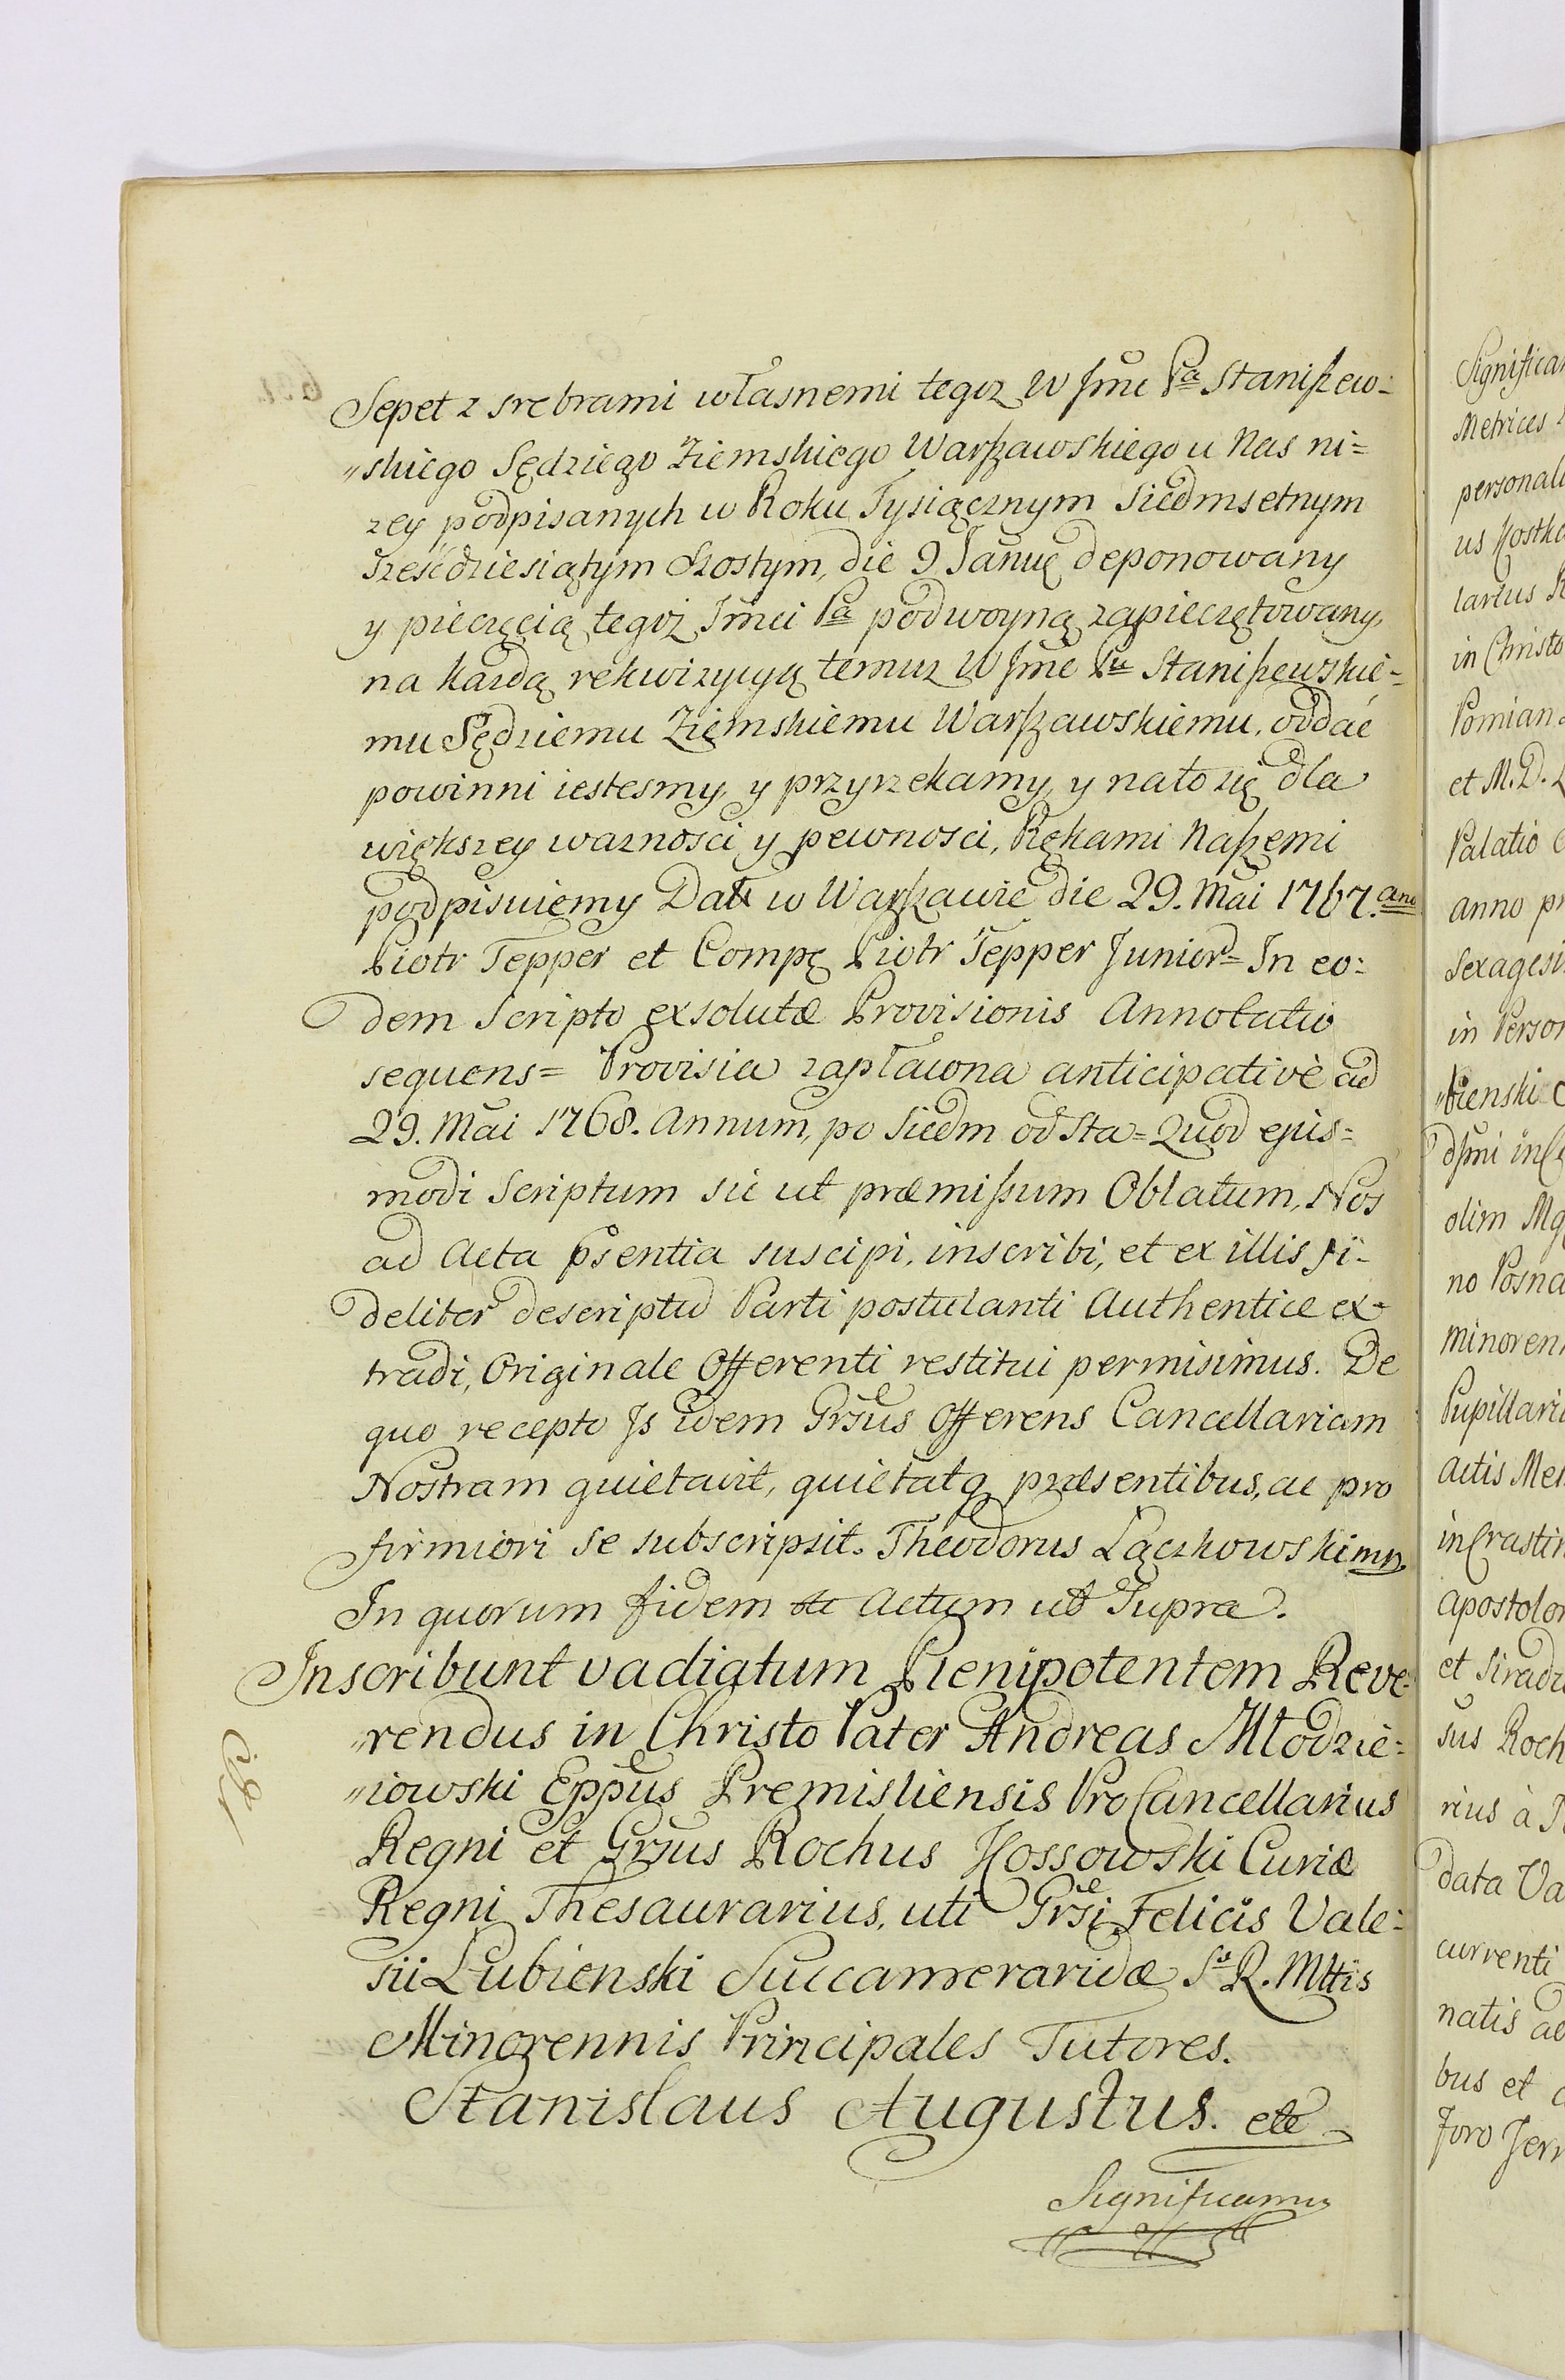 Sepet z srebrami własnemi tegoz W Jmć Pa Staniszew-
„skiego Sędziego Ziemskiego Warszawskiego u Nas ni=
zey podpisanych w Roku Tysiącznym Siedmsetnym
Sześćdziesiątym Szostym, die 9 Januę deponowany
y pieczęcią tegoż Jmci Pa podwoyną zapieczętowany,
na kazdą rekwizycyą temuz W Jmć Pu Staniszewskie-
mu Sędziemu Ziemskiemu Warszawskiemu, oddać
powinni iestesmy, y przyrzekamy, y na to się dla
większey waznosci y pewnosci, Rękami Naszemi
podpisuiemy Datt w Warszawie die 29. Mai 1767. ano
Piotr Tepper et Compę Piotr Tepper Junior= In eo=
dem Scripto exsolutæ Provisionis Annotatio
sequens= Provisia zapłacona anticipativè ad
29. Mai 1768. Annum, po Siedm od Sta= Quod ejus=
modi Scriptum sic ut præmissum Oblatum, Nos
ad Acta psentia suscipi, inscribi, et ex illis fi-
deliter descriptũ Parti postulanti Authentice ex-
tradi, Originale Offerenti restitui permisimus. De
quo recepto Js idem Grsus Offerens Cancellariam
Nostram quietavit, quietatq præsentibus, ac pro
firmiori se subscripsit. Theodorus Łączkowski mp.
In quorum fidem etc Actum ut Supra.
Inscribunt vadiatum Plenipotentem Reve-
„rendus in Christo Pater Andreas Młodzie=
„iowski Eppus Premisliensis ProCancellarius
Regni et Grsus Rochus Kossowski Curiæ
Regni Thesaurarius, uti Grsi Felicis Vale=
sii Łubienski Succameraridæ Sæ R. Mttis
Minorennis Principales Tutores.
Stanislaus Augustus. etc
Significamus
Significam
Metrices
personali
us Kostka
larius
in Christo
Pomian
et M. D.
Palatio
anno pr
Sexagesi
in Person
„bienski
dſmi in
olim Mg
no Posna
minoren
Pupillari
Actis Me
in Crastin
Apostolo
et Siradi
sus Roch
rius à
data Va
currenti
natis ac
bus et
foro